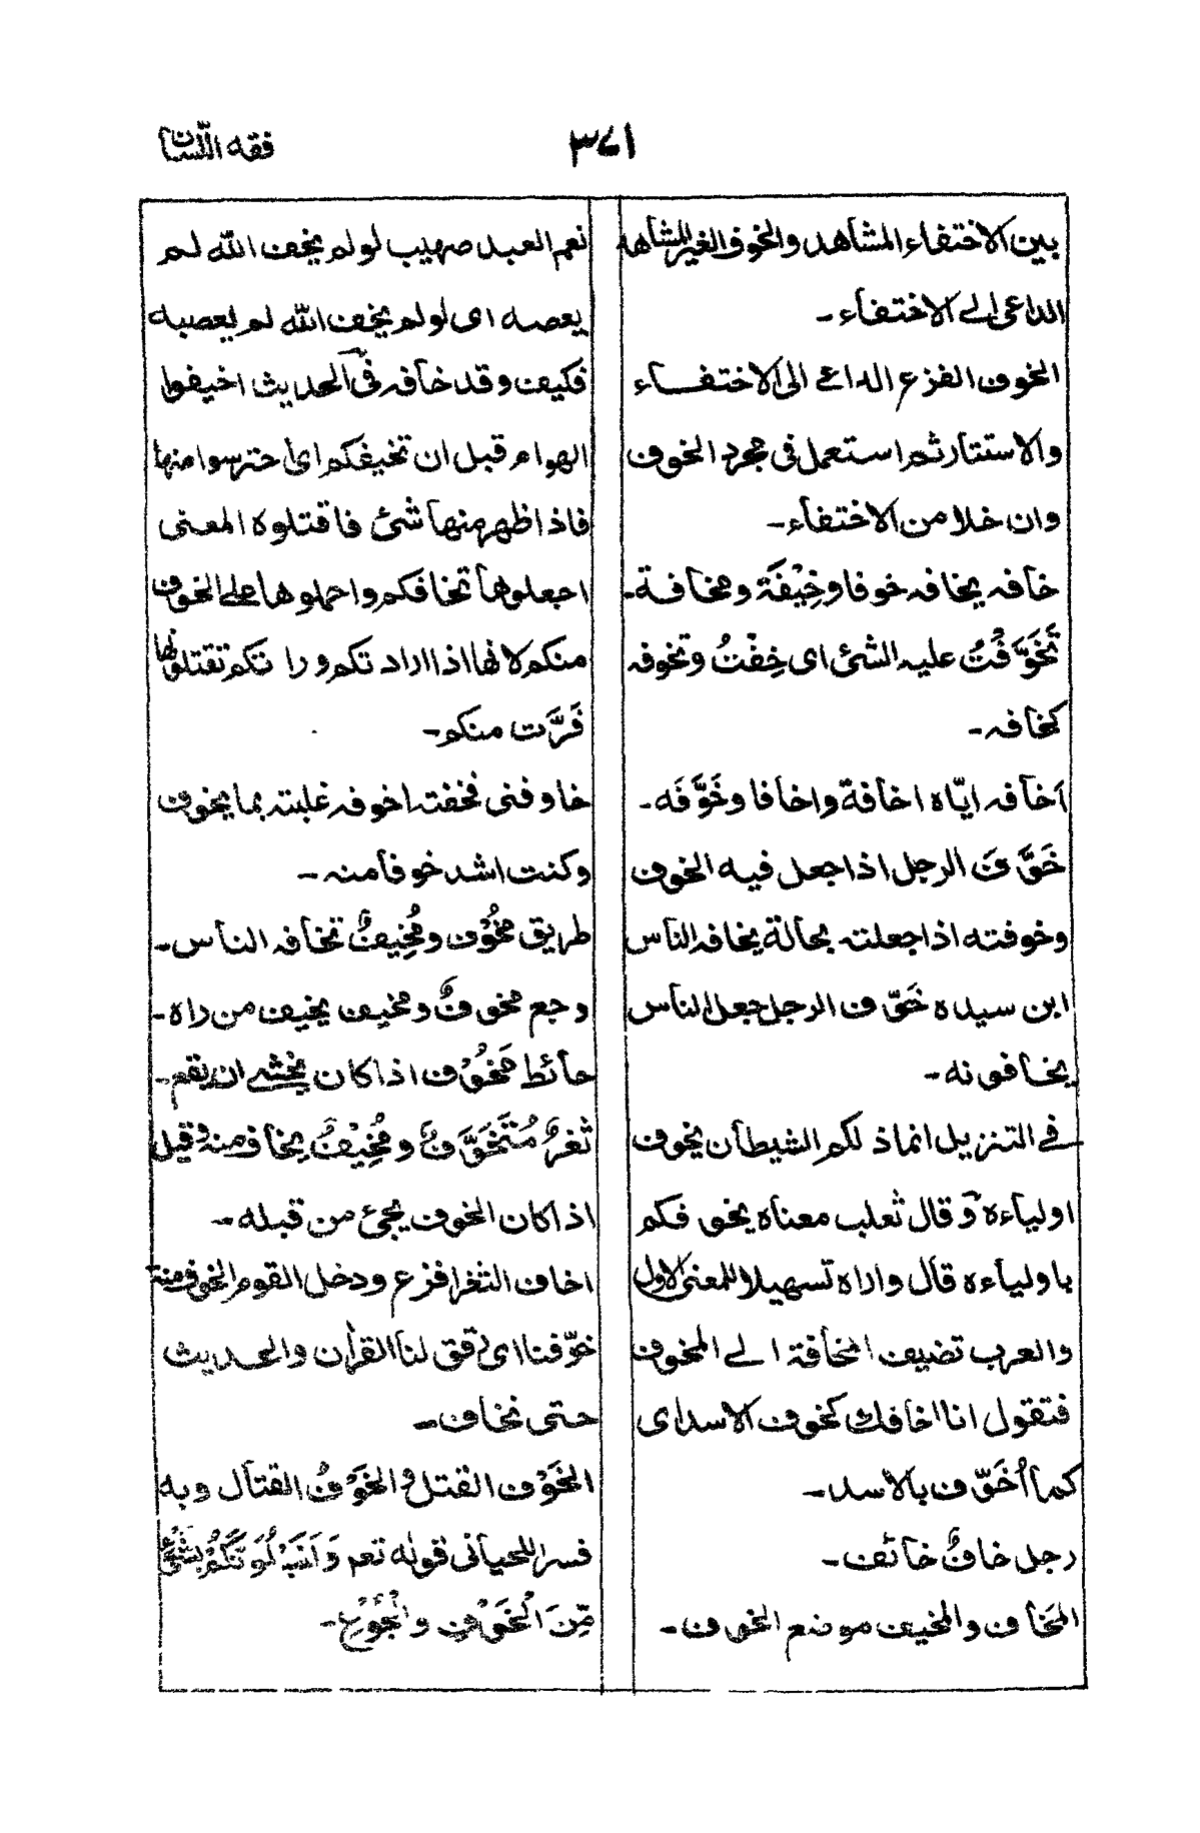 فقه اللّسان
٣٧١
بين الاختفاء المشاهد والخوف الغير المشاهد
الداعى الى الاختفاء ـ
الخوف الفزع الداعى الى الاختفاء
والاستتار ثم استعمل فى مجرد الخوف
وان خلا من الاختفاء ـ
خافه يخافه خوفا وخِيْفَة ومخافة ـ
تَخَوَّفْتُ عليه الشئ اى خِفْتُ وتخوفه
كخافه ـ
اخافه ايّاه اخافة واخافا وخَوَّفَه ـ
خَوَّفَ الرجل اذا جعل فيه الخوف
وخوفته اذا جعلته بحالة يخافه الناس
ابن سيده خَوّف الرجل جعل الناس
يخافونه ـ
فى التنزيل انما ذلكم الشيطان يخوف
اولياءه وقال ثعلب معناه يخوفكم
باولياءه قال واراه تسهيلا للمعنى الاول
والعرب تضيف المخافة الى المخوف
فتقول انا اخافك كخوف الاسد اى
كما اُخَوّف بالاسد ـ
رجل خافٌ خائف ـ
المَخاف والمخيف موضع الخوف ـ
نعم العبد صهيب لو لم يخف الله لم
يعصه اى لو لم يخف الله لم يعصه
فكيف وقد خافه فى الحديث اخيفوا
الهوام قبل ان تخيفكم اى احترسوا منها
فاذا ظهر منها شئ فاقتلوه المعنى
اجعلوها تخافكم واحملوها على الخوف
منكم لانها اذا ارادتكم وراتكم تقتلونها
فَرَّت منكم ـ
خاوفنى فخفته اخوفه غلبته بما يخوف
وكنت اشد خوفا منه ـ
طريق مخُوْف ومُخِيفٌ تخافه الناس ـ
وجع مخوفٌ ومخيف يخيف من راه ـ
حائط مَخُوْف اذا كان يخشى ان يقع ـ
ثغرٌ مُتَخَوَّفٌ ومُخِيْفٌ يخاف منه وقيل
اذا كان الخوف يجئ من قبله ـ
اخاف الثغر افزع ودخل القوم الخوف منه
خوّفنا اى رقق لنا القرآن والحديث
حتى نخاف ـ
الخَوْف القتل والخَوْفُ القتال وبه
فسر اللحيانى قوله تعم وَلَنَبْلُوَنَّكُمْ بِشَئٍ
مِّنَ الْخَوْفِ وَالْجُوْعِ ـ